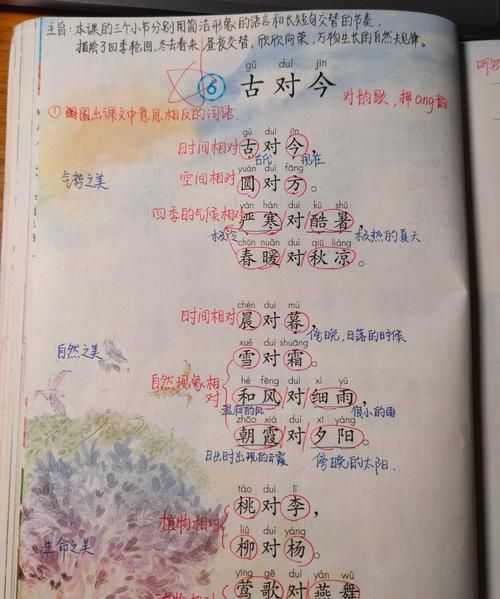 主旨:本课的三个小节分别用简洁形象的语言和长短句交替的节奏,
描绘了四季轮回,冬去春来,昼夜交替,欣欣向荣,万物生长的自然大规律。
gǔ duì jīn
6 古对今 对韵歌,押ang韵
①圈出课文中意思相反的词语.
gǔ duì jīn
时间相对 古对今,
古代 现在
yuán duì fāng
气势之美 空间相对 圆对方。
yán hán duì kù shǔ
四季的气候相对 严寒对酷暑,
极冷 极热的夏天
chūn nuǎn duì qiū liáng
春暖对秋凉。
chén duì mù
时间相对 晨对暮,
傍晚,日落的时候
xuě duì shuāng
自然之美 雪对霜。
自然现象相对
hé fēng duì xì yǔ
和风对细雨,
温和的风 很小的雨
zhāo xiá duì xī yáng
朝霞对夕阳。
日出时出现的云霞 傍晚的太阳.
táo duì lǐ
植物相对 桃对李,
liǔ duì yáng
生命之美 柳对杨。
yīng gē duì yàn wǔ
动物相对 莺歌对燕舞